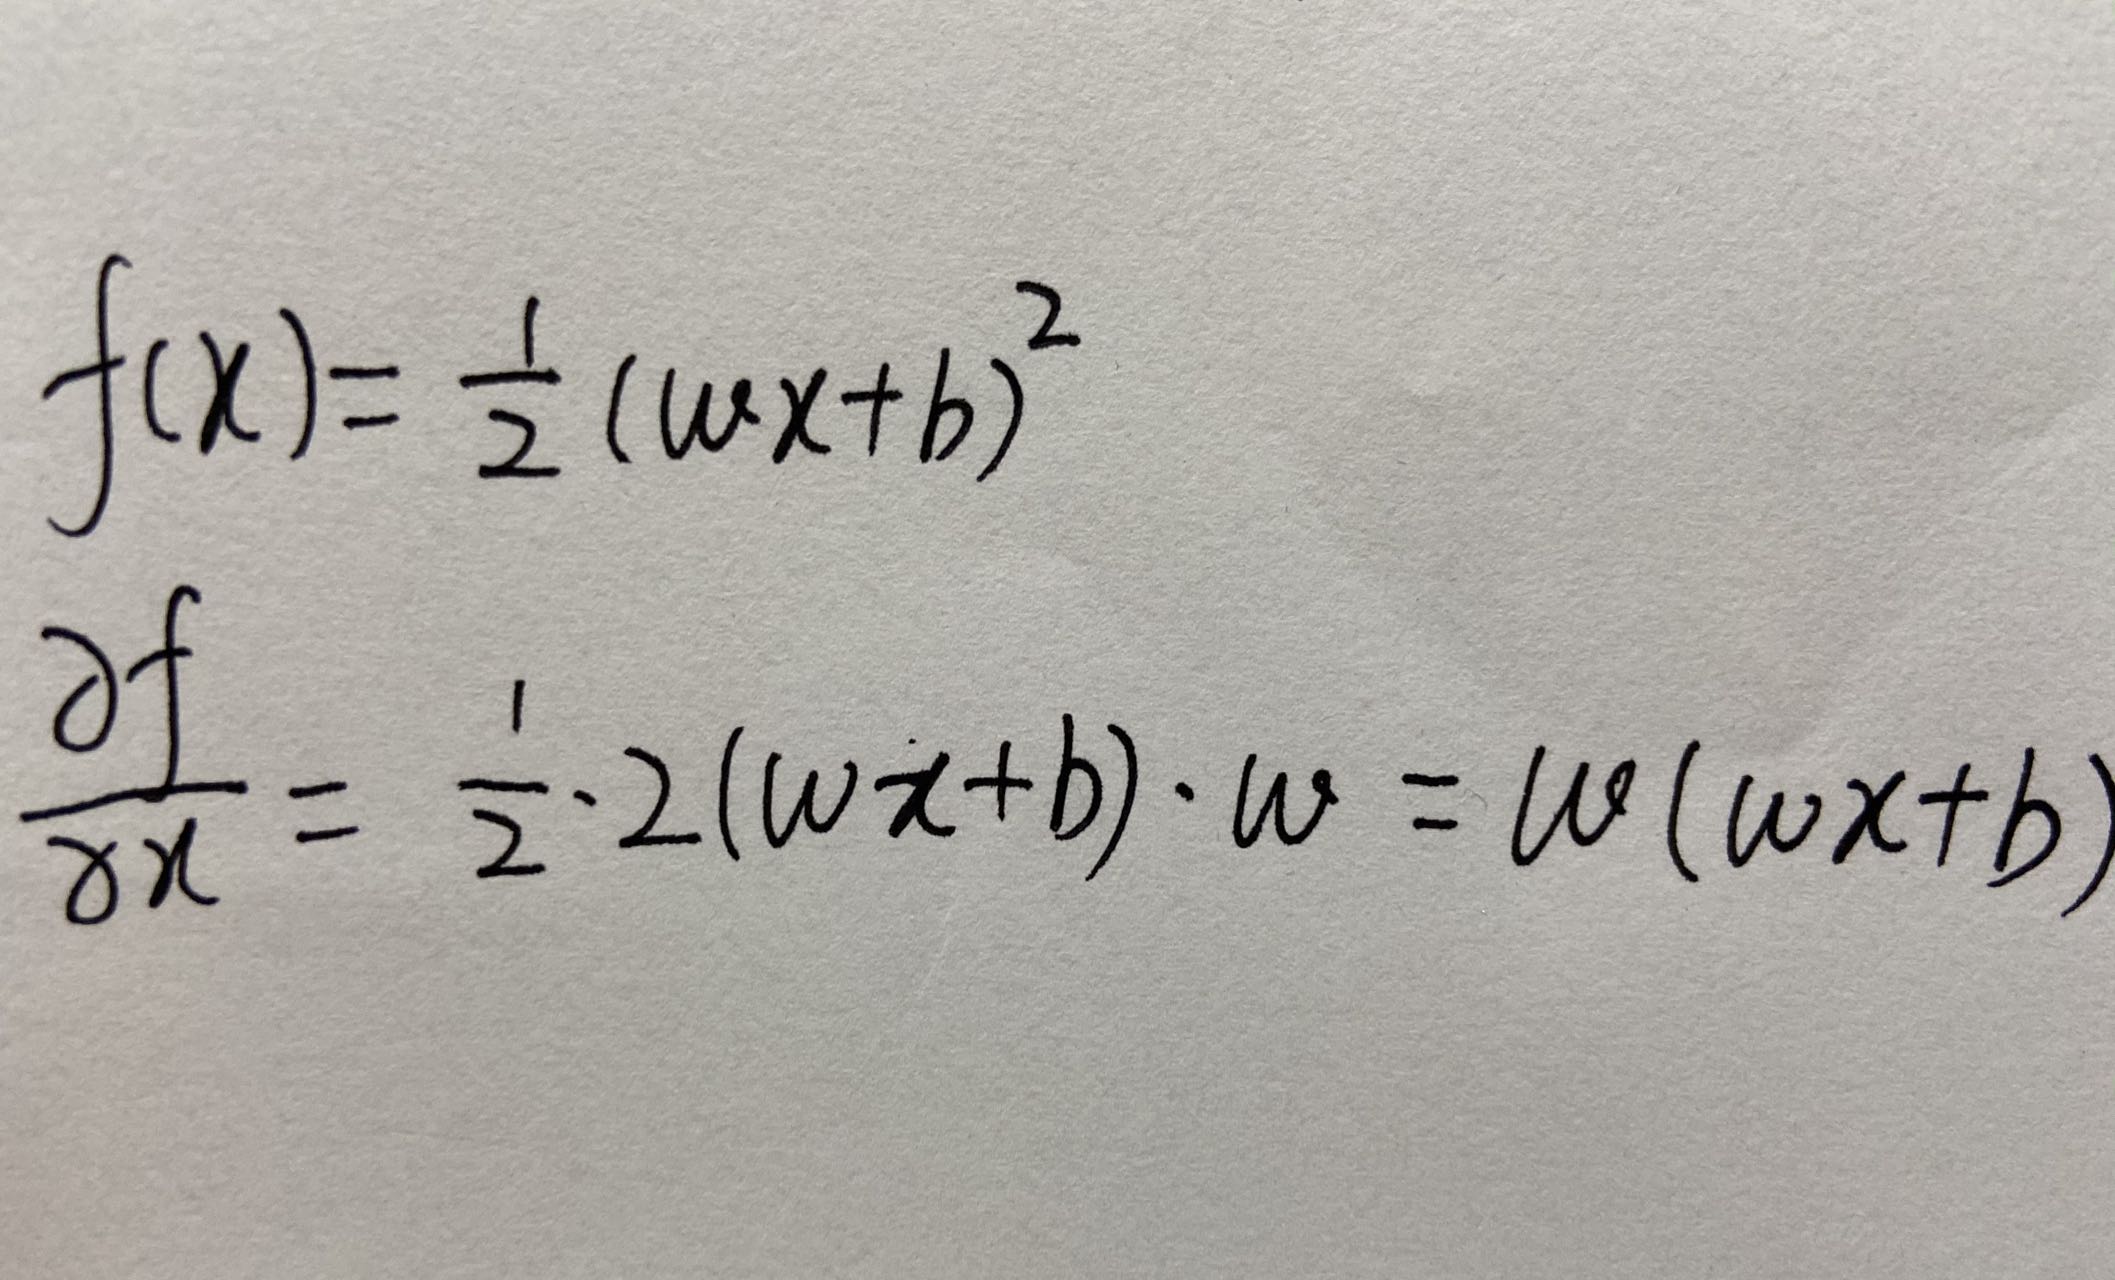 f(x) = 1/2 (wx+b)²
∂f/∂x = 1/2 · 2(wx+b) · w = w(wx+b)